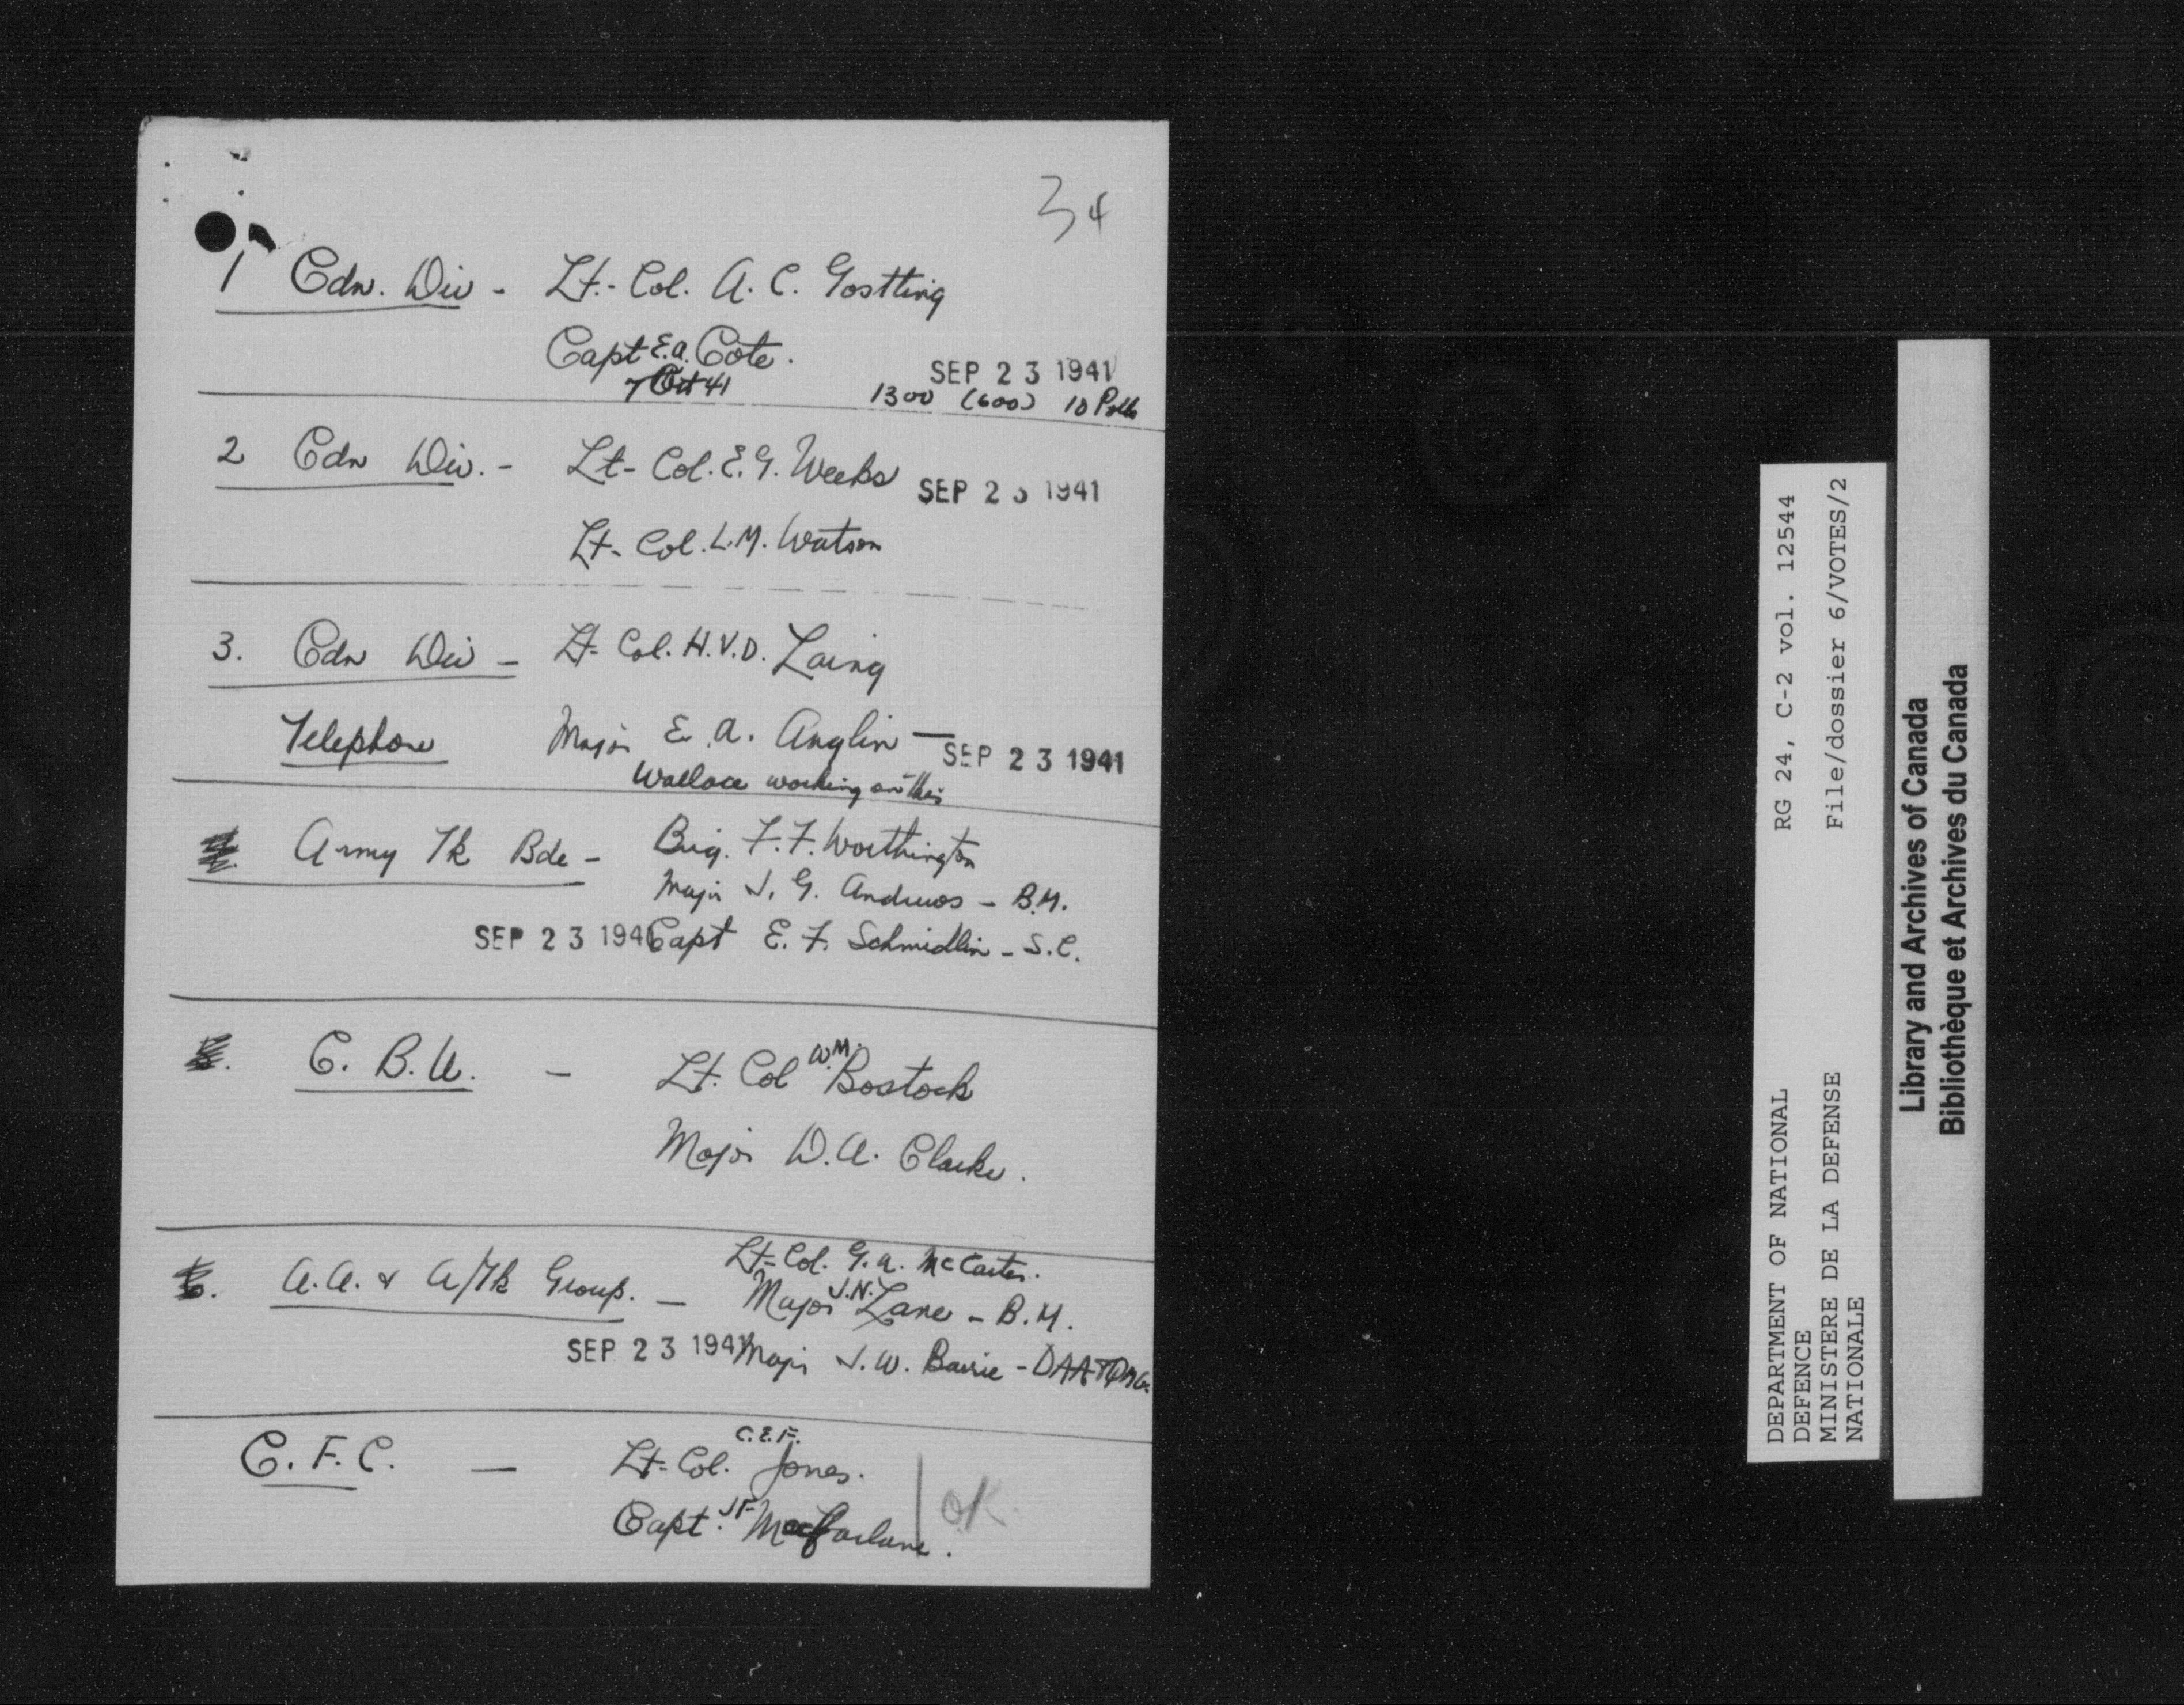 34
1 Cdn. Div - Lt.-Col. A. C. Gostling
Capt E.A. Cote.
7 Oct 41
SEP 23 1941
1300 (600) 10 Polls
2 Cdn Div. - Lt-Col. E. G. Weeks
SEP 23 1941
Lt-Col. L. M. Watson
3. Cdn Div - Lt-Col. H.V.D. Laing
Telephone Major E. A. Anglin -
SEP 23 1941
Wallace working on this
Army Tk Bde - Brig. F. F. Worthington
Major J. G. Andrews - B.M.
SEP 23 1941 Capt E. F. Schmidlin - S.C.
C. B. U. - Lt. Col W.M. Bostock
Major D. A. Clarke.
Lt-Col. G. A. McCarter.
6. A.A. & A/Tk Group. - Major J.N. Lane - B.M.
SEP 23 1941 Major J. W. Barrie - DAA+QMG.
C. F. C. - Lt-Col. C.E.F. Jones.
Capt. J F MacFarlane.
OK
RG 24, C-2 vol. 12544
File/dossier 6/VOTES/2
DEPARTMENT OF NATIONAL
DEFENCE
MINISTERE DE LA DEFENSE
NATIONALE
Library and Archives of Canada
Bibliothèque et Archives du Canada